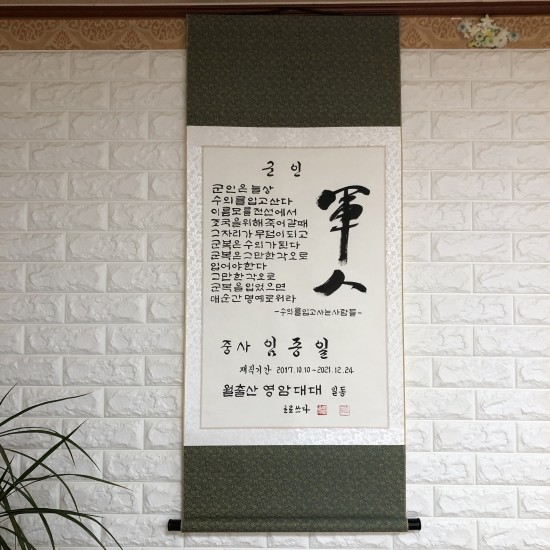 군인
군인은 늘상
수의를 입고 산다
이름모를 전선에서
조국을 위해 죽어갈때
그자리가 무덤이 되고
군복은 수의가 된다
군복은 그만한 각오로
입어야 한다
그만한 각오로
군복을 입었으면
매순간 명예로워라
-수의를 입고사는 사람들-
軍人
중사 임종일
재직기간 2017.10.10~2021.12.24
월출산 영암대대 일동
쓰다